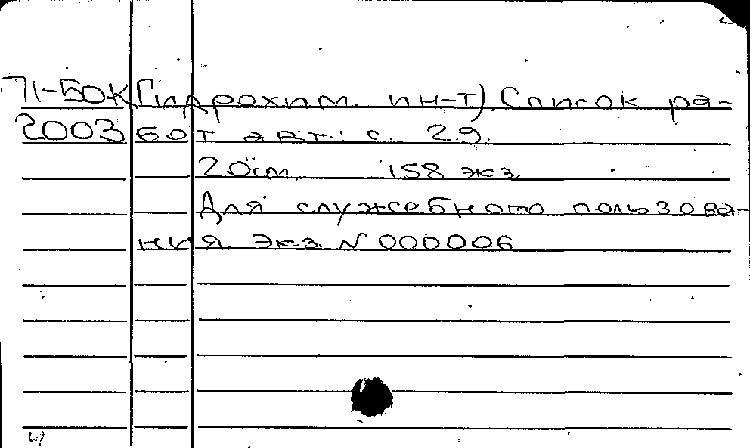 71-50К Гидрохим. ин-т). Список ра-
2003 бот авт.: с. 29.
20 см. 158 экз.
Для служебного пользова-
ния. Экз. N 000006